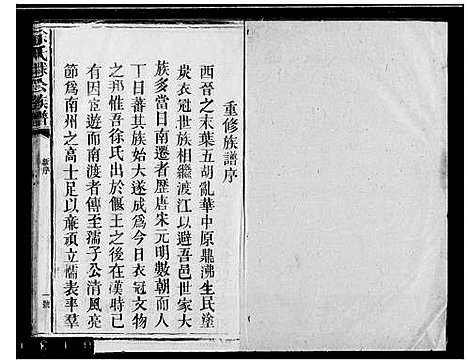 重修族譜序
西晉之末葉五胡亂華中原鼎沸生民塗
炭衣冠世族相繼渡江以避吾邑世家大
族多當日南遷者歷唐宋元明數朝而人
丁日蕃其族始大遂成爲今日衣冠文物
之邦惟吾徐氏出於偃王之後在漢時已
有因宦遊而南渡者傳至孺子公清風亮
節爲南州之高士足以廉頑立懦表率羣
新序
一號